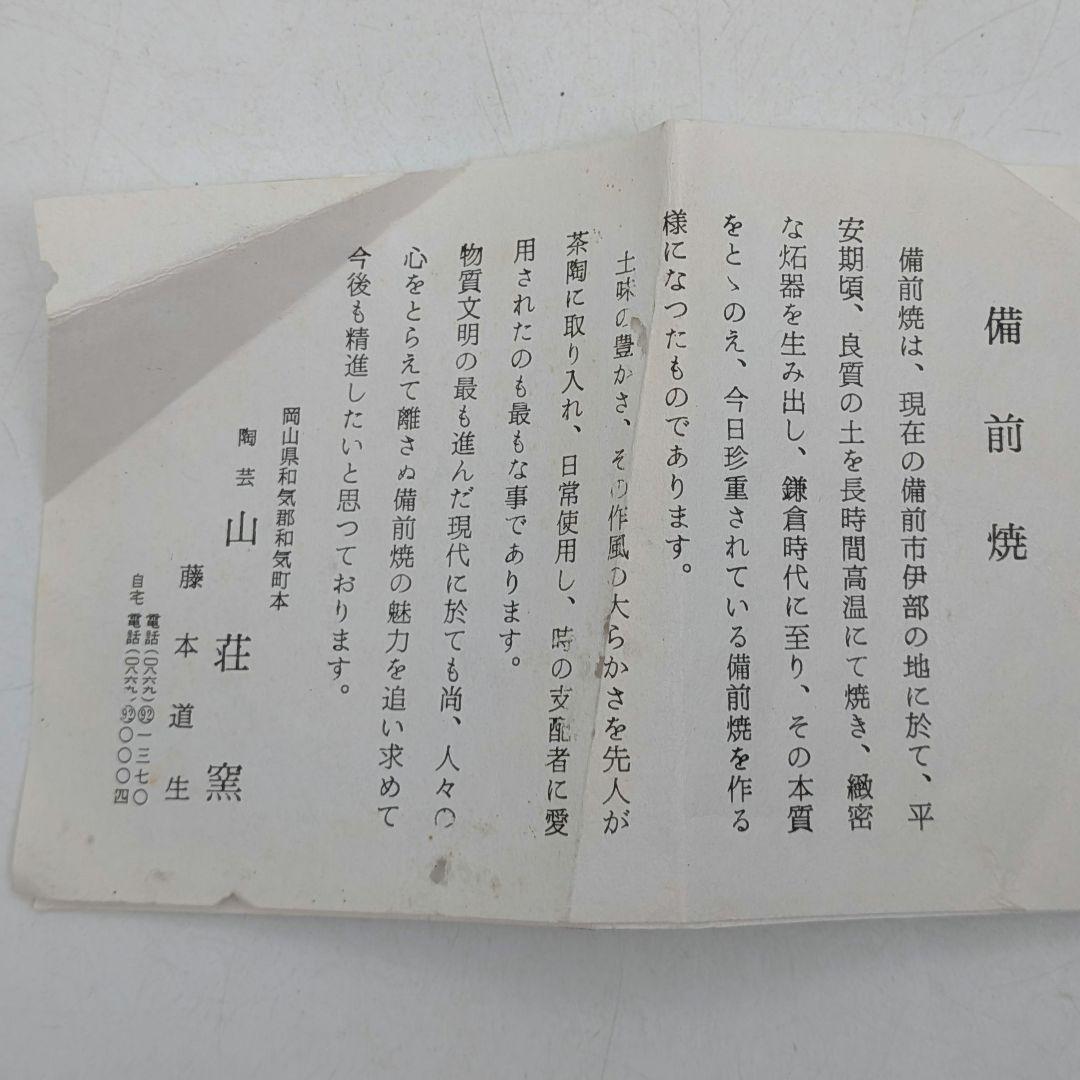 備前焼
備前焼は、現在の備前市伊部の地に於て、平
安期頃、良質の土を長時間高温にて焼き、緻密
な炻器を生み出し、鎌倉時代に至り、その本質
をとゝのえ、今日珍重されている備前焼を作る
様になつたものであります。
土味の豊かさ、その作風の大らかさを先人が
茶陶に取り入れ、日常使用し、時の支配者に愛
用されたのも最もな事であります。
物質文明の最も進んだ現代に於ても尚、人々の
心をとらえて離さぬ備前焼の魅力を追い求めて
今後も精進したいと思つております。
岡山県和気郡和気町本
陶芸 山荘窯
藤本道生
電話(〇八六九)㉒一三七〇
自宅 電話(〇八六九)㉒〇〇〇四